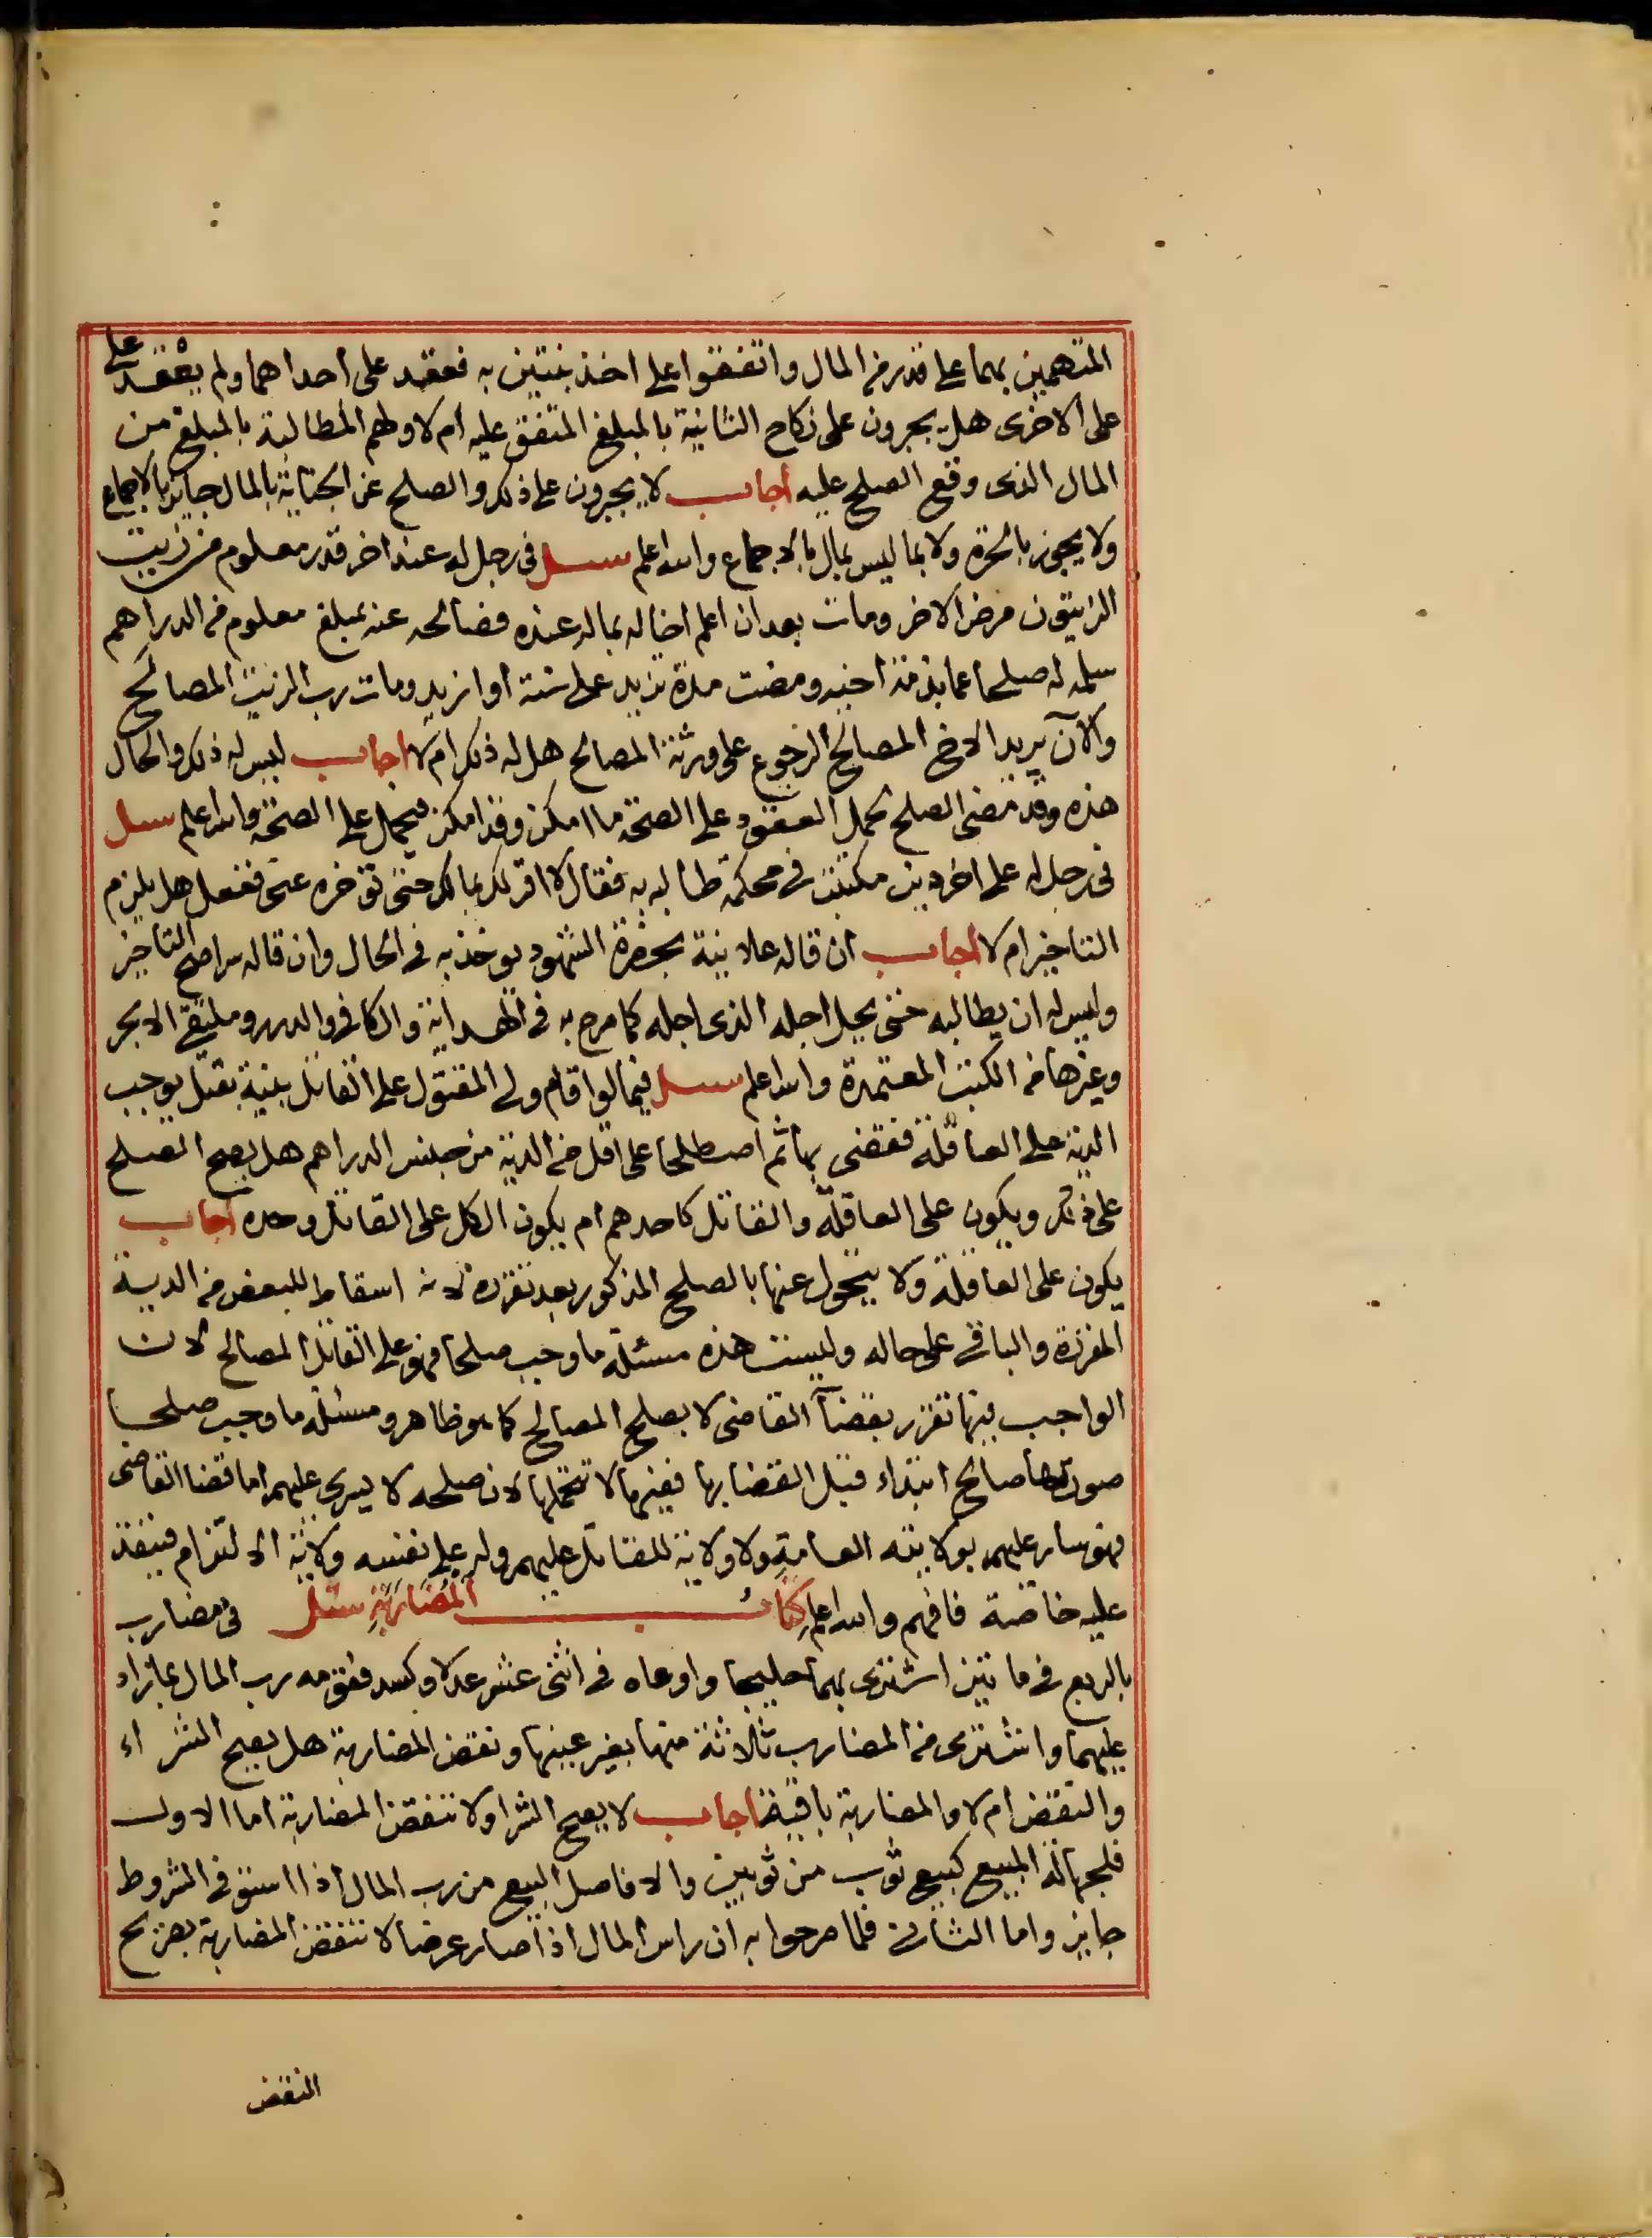 المتهمين بهما على قدر من المال واتفقوا على اخذ بنتين به فعقد على أحداهما ولم يعقد على
على الاخرى هل يجبرون على نكاح الثانية بالمبلغ المتفق عليه أم لا ولهم المطالبة بالمبلغ من
المال الذى وقع الصلح عليه أجاب لا يجبرون على ذلك والصلح عن الجناية بالمال جايز بالاجماع
ولا يجوز بالحرة ولا بما ليس بمال بالاجماع والله اعلم سئل فى رجل له عند اخر قدر معلوم من زيت
الزيتون مرض الاخر ومات بعد ان اعلم اخا له بماله عنده فصالحه عنه بمبلغ معلوم من الدراهم
سلمه له صلحا عما بذمة اخيه ومضت مدة تزيد على سنة او ازيد ومات رب الزيت المصالح
والآن يريد الاخ المصالح الرجوع على ورثة المصالح هل له ذلك ام لا أجاب ليس له ذلك والحال
هذه وقد مضى الصلح تحمل العقود على الصحة ما امكن وقد امكن فيحمل على الصحة والله اعلم سئل
فى رجل له على اخر دين مكتتب فى محكمة طالبه به فقال لا اقر لك بمالك حتى تؤخره عنى ففعل هل يلزم
التاخير ام لا أجاب ان قاله علانية بحضرة الشهود يوخذ به فى الحال وان قاله سرا صح التاخير
وليس له ان يطالبه حتى يحل اجله الذى اجله كما صرح به فى الهداية والكافى والدرر وملتقى الابحر
وغيرها من الكتب المعتمدة والله اعلم سئل فيما لو اقام ولى المقتول على القاتل بينة بقتل يوجب
الدية على العاقلة فقضى بها ثم اصطلحا على اقل من الدية من جنس الدراهم هل يصح الصلح
على ذلك ويكون على العاقلة والقاتل كاحدهم ام يكون الكل على القاتل وحده أجاب
يكون على العاقلة ولا يتحول عنها بالصلح المذكور بعد تقرره لانه اسقاط للبعض من الدية
المقررة والباقى على حاله وليست هذه مسئلة ما وجب صلحا فهو على القاتل المصالح لان
الواجب فيها تقرر بقضآ القاضى لا بصلح المصالح كما هو ظاهر ومسئلة ما وجب صلحا
صورتها صالح ابتداء قبل القضا بها فغيرها لا تحملها لان صلحه لا يسرى عليهم اما قضا القاضى
فهو سار عليهم بولايته العامة ولا ولاية للقاتل عليهم وله على نفسه ولاية الالتزام فينفذ
عليه خاصة فافهم والله اعلم كتاب المضاربة سئل فى مضارب
بالربع فى مائتين اشترى بهما حليجا واوعاه فى اثنى عشر عدلا وكسد فقومه رب المال بما زاد
عليهما واشترى من المضارب ثلاثة منها بغير عينها ونقض المضاربة هل يصح الشراء
والنقض ام لا والمضاربة باقية أجاب لا يصح الشرا ولا تنتقض المضاربة اما الاول
فلجهالة المبيع كبيع ثوب من ثوبين والا فاصل البيع من رب المال اذا استوفى الشروط
جايز واما الثانى فلما صرحوا به ان راس المال اذا صار عرضا لا تنتقض المضاربة بصريح
النقض